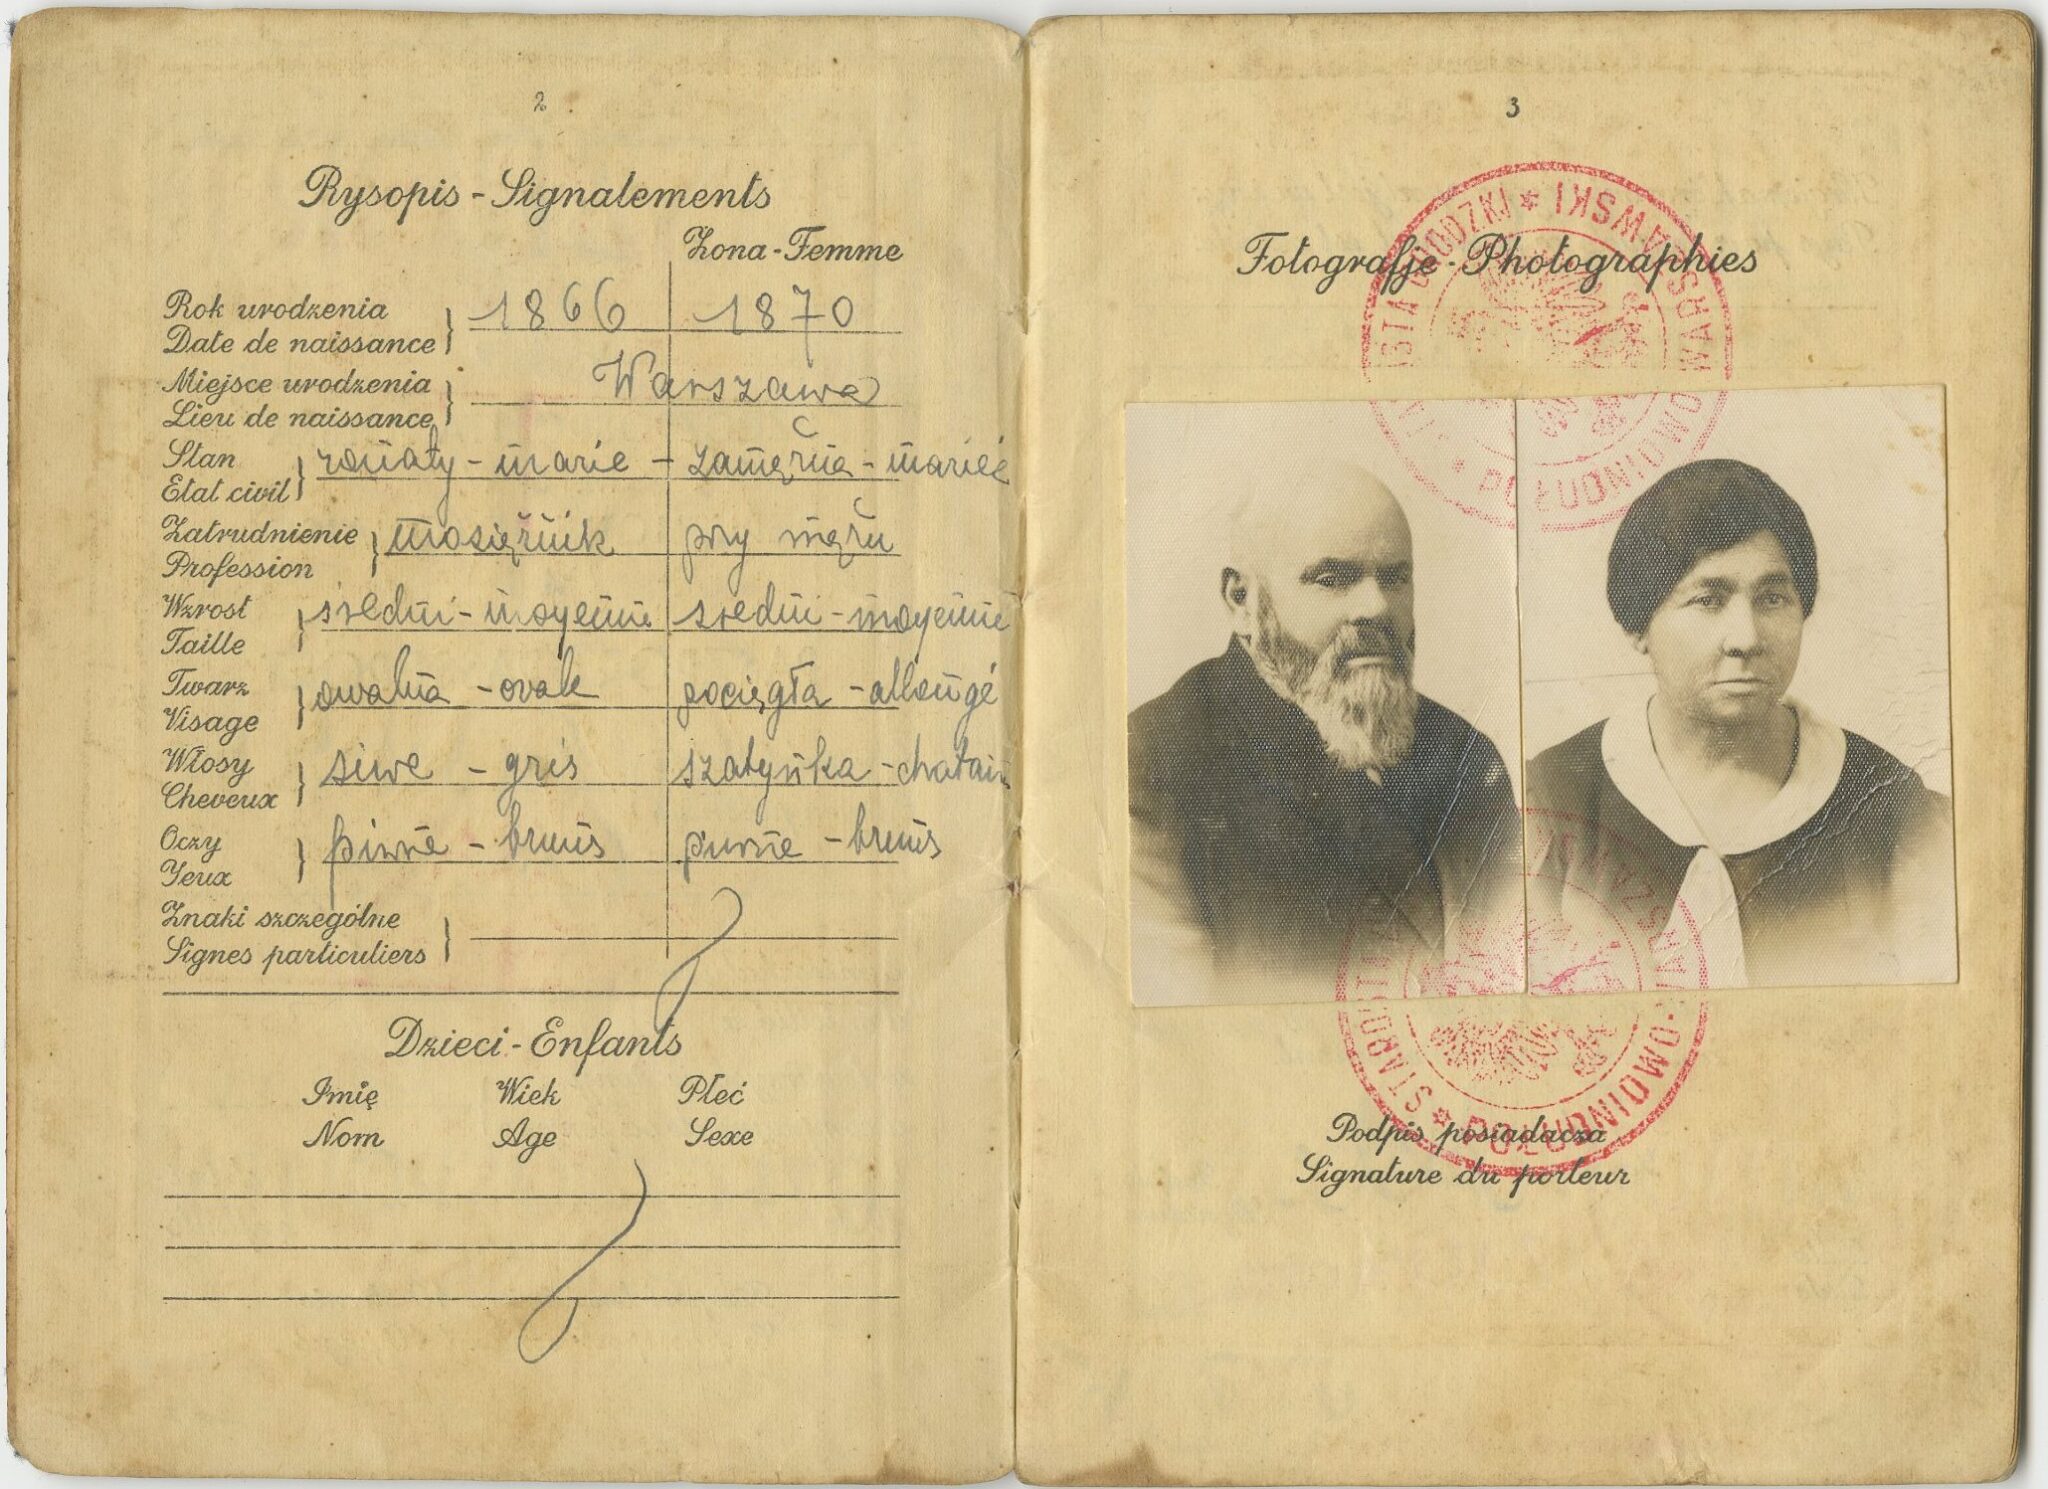 2
Rysopis - Signalements
Żona - Femme
Rok urodzenia
Date de naissance
1866 1870
Miejsce urodzenia
Lieu de naissance
Warszawa
Stan
Etat civil
żonaty - marie - zamężna - mariée
Zatrudnienie
Profession
mosiężnik przy mężu
Wzrost
Taille
średni - moyenne średni - moyenne
Twarz
Visage
owalna - ovale pociągła - allongé
Włosy
Cheveux
siwe - gris szatynka - chatain
Oczy
Yeux
piwne - bruns piwne - bruns
Znaki szczególne
Signes particuliers
Dzieci - Enfants
Imię Wiek Płeć
Nom Age Sexe
3
Fotografje - Photographies
STAROSTA GRODZKI * POŁUDNIOWO-WARSZAWSKI *
STAROSTA * POŁUDNIOWO-WARSZAWSKI
Podpis posiadacza
Signature du porteur